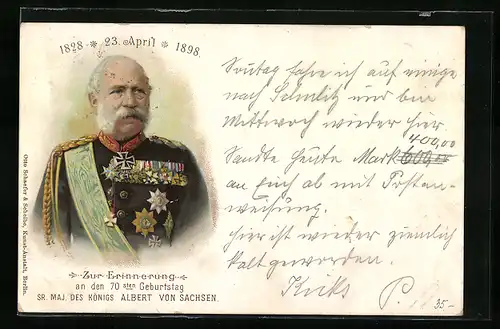 1828 * 23. April * 1898.
Sontag fahre ich auf einige
nach und bin
Mittwoch wieder hier.
400,00
Sandte heute Mark 600,00
an Euch ab mit Postan-
weisung.
hier ist wieder ziemlich
kalt geworden.
P.
Zur Erinnerung
an den 70 sten Geburtstag
SR. MAJ. DES KÖNIGS ALBERT VON SACHSEN.
Otto Schaefer & Scheibe, Kunst-Anstalt, Berlin.
35-